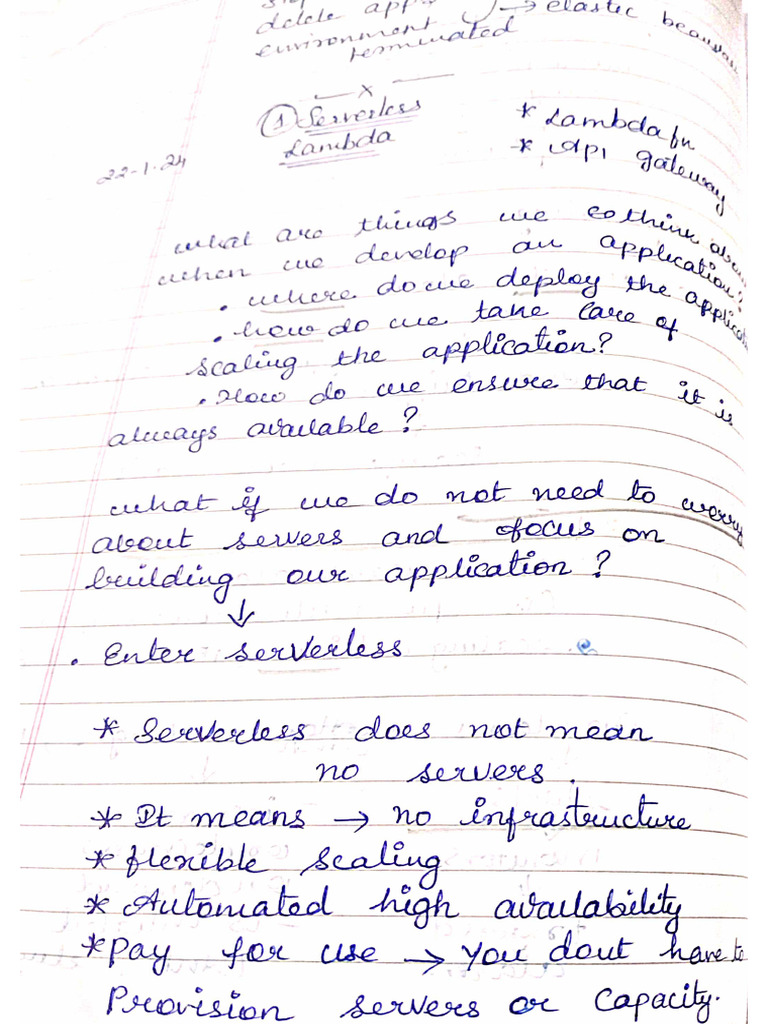 delete app
→ elastic beanstalk
environment
terminated
— x —
① Serverless
Lambda
* Lambda fn
* Api gateway
22-1-24
what are things we to think about
when we develop an application?
. where do we deploy the application
. how do we take care of
scaling the application?
. How do we ensure that it is
always available?
what if we do not need to worry
about servers and focus on
building our application?
↓
. Enter serverless
* Serverless does not mean
no servers.
* It means → no infrastructure
* flexible scaling
* Automated high availability
* pay for use → you dont have to
Provision servers or capacity.